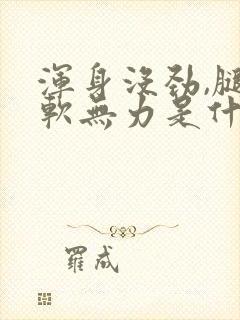 渾身沒勁,腿
軟無力是什
羅成